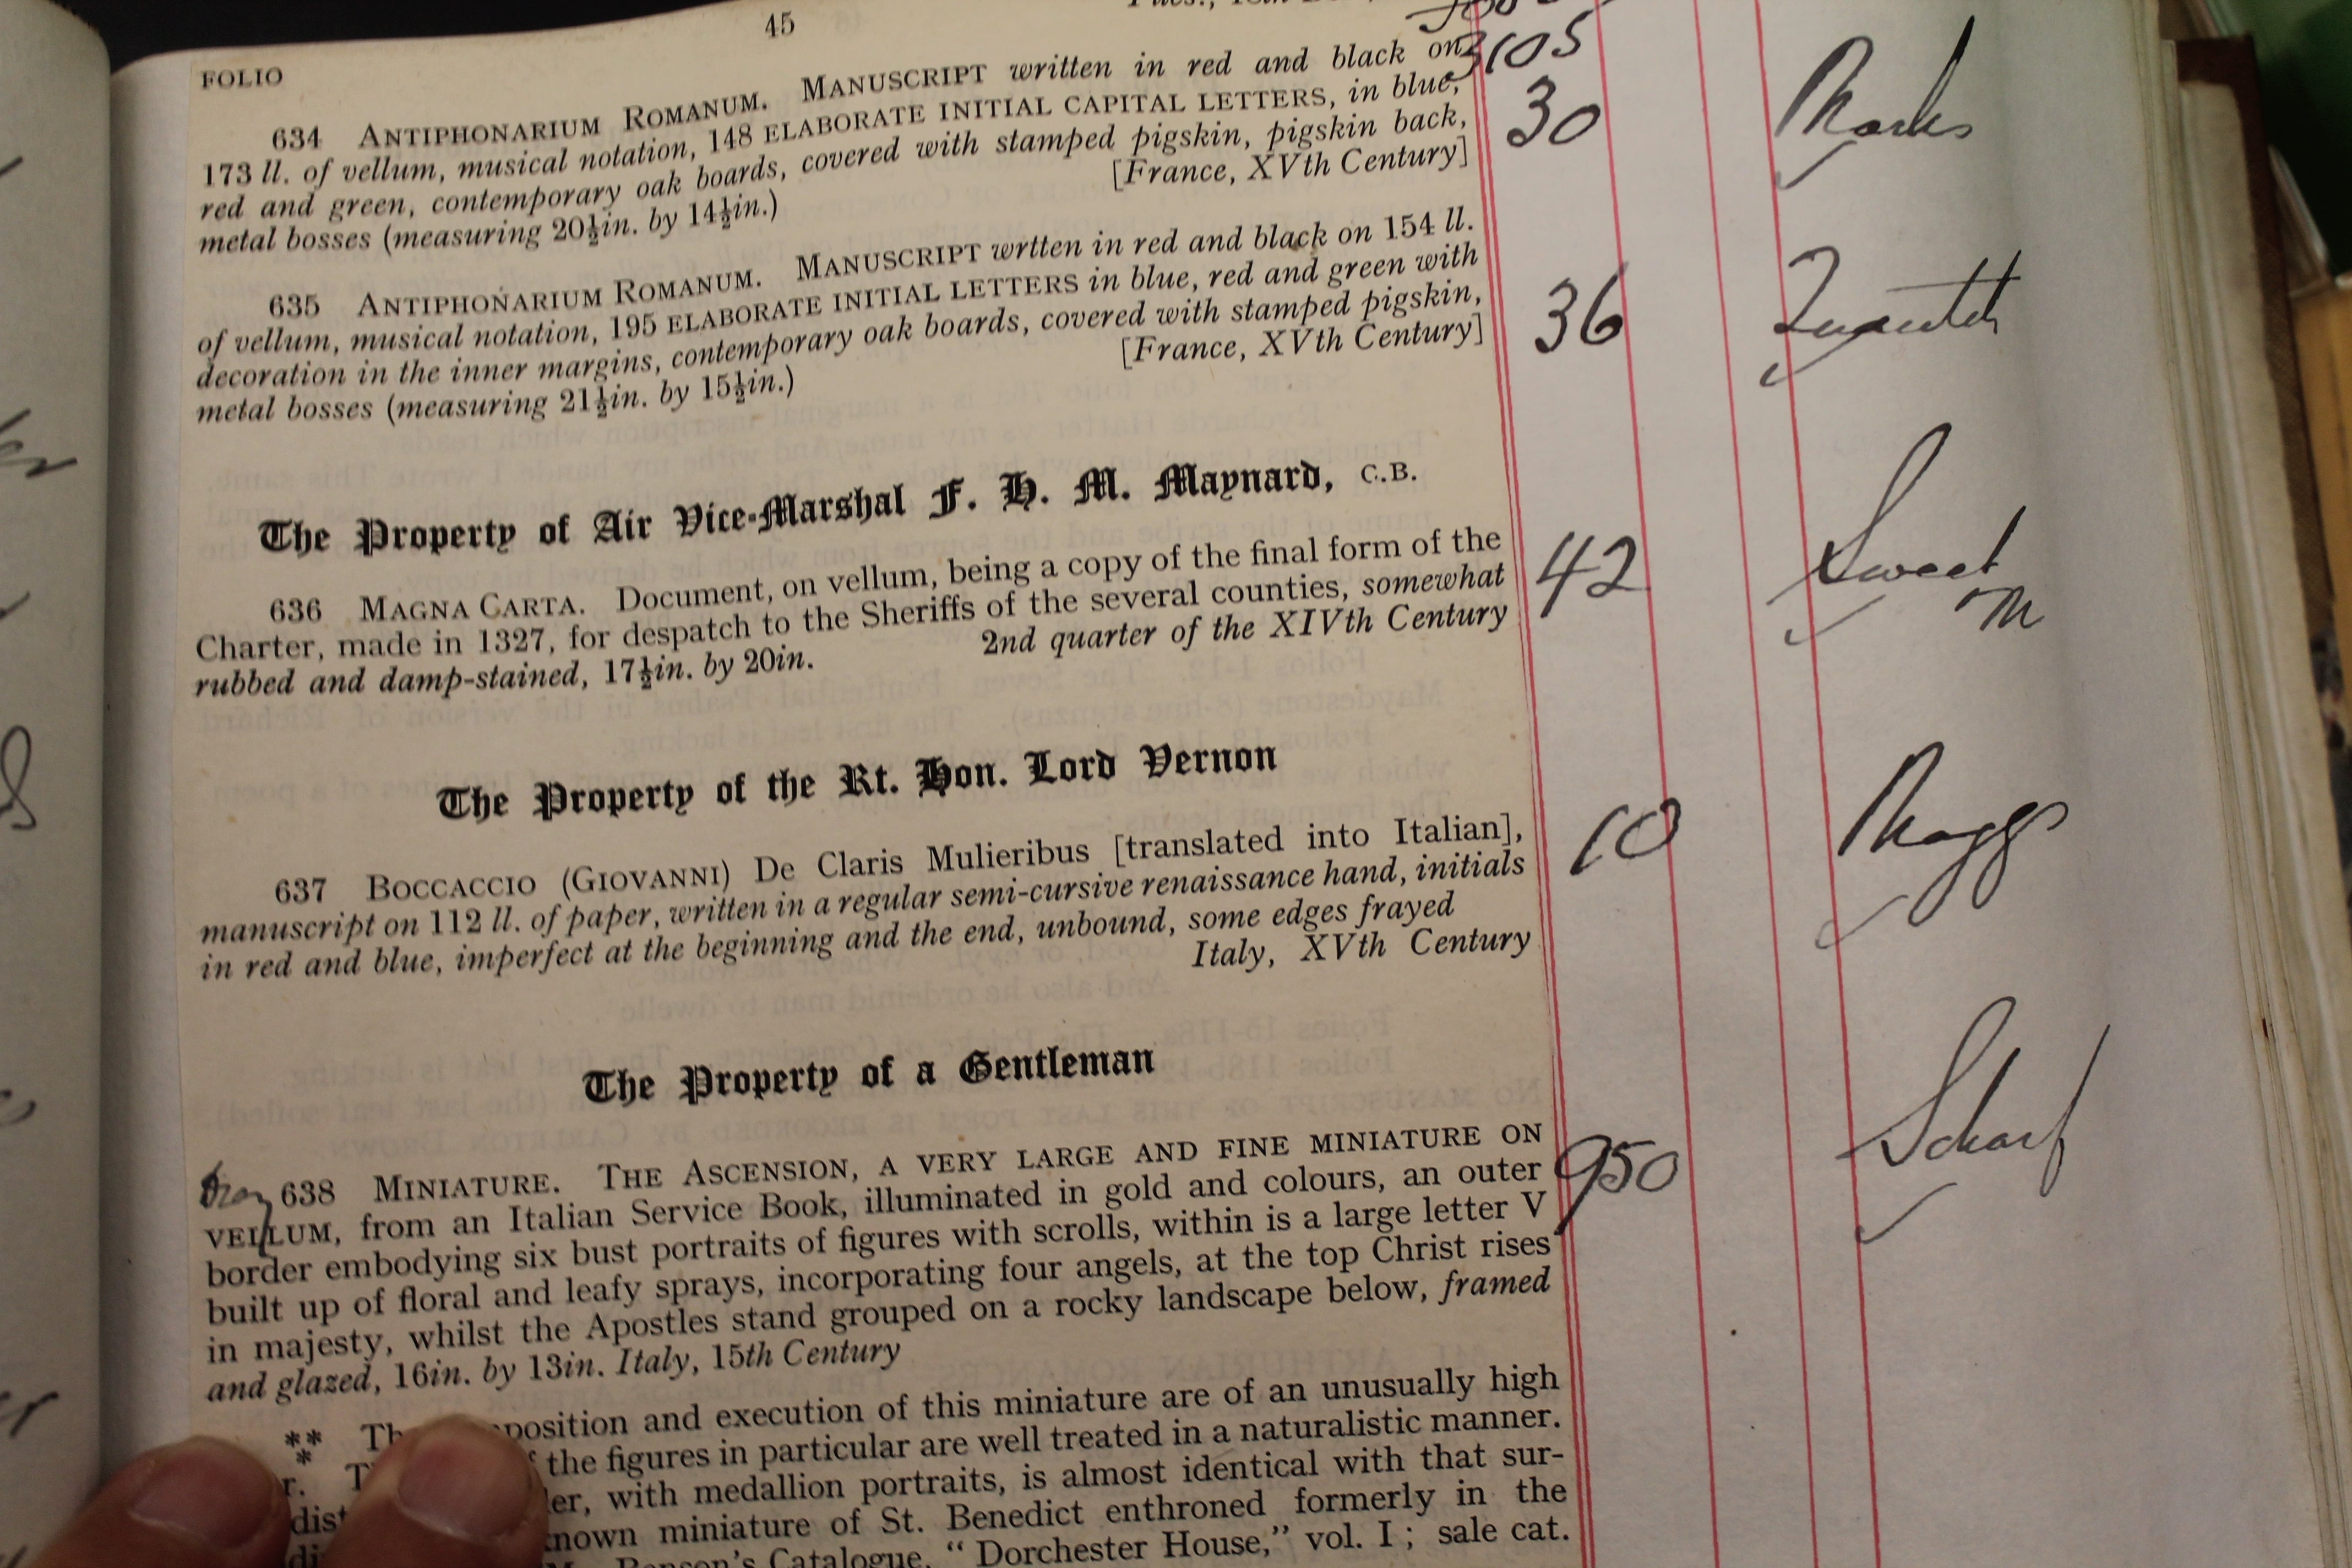 45
FOLIO
3105
634 ANTIPHONARIUM ROMANUM. MANUSCRIPT written in red and black on
173 ll. of vellum, musical notation, 148 ELABORATE INITIAL CAPITAL LETTERS, in blue,
red and green, contemporary oak boards, covered with stamped pigskin, pigskin back,
metal bosses (measuring 20½in. by 14½in.) [France, XVth Century]
30 Marks
635 ANTIPHONARIUM ROMANUM. MANUSCRIPT wrtten in red and black on 154 ll.
of vellum, musical notation, 195 ELABORATE INITIAL LETTERS in blue, red and green with
decoration in the inner margins, contemporary oak boards, covered with stamped pigskin,
metal bosses (measuring 21½in. by 15½in.) [France, XVth Century]
36
The Property of Air Vice-Marshal F. H. M. Maynard, C.B.
636 MAGNA CARTA. Document, on vellum, being a copy of the final form of the
Charter, made in 1327, for despatch to the Sheriffs of the several counties, somewhat
rubbed and damp-stained, 17½in. by 20in. 2nd quarter of the XIVth Century
42 Sweet
M
The Property of the Rt. Hon. Lord Vernon
637 BOCCACCIO (GIOVANNI) De Claris Mulieribus [translated into Italian],
manuscript on 112 ll. of paper, written in a regular semi-cursive renaissance hand, initials
in red and blue, imperfect at the beginning and the end, unbound, some edges frayed
Italy, XVth Century
10 Maggs
The Property of a Gentleman
638 MINIATURE. THE ASCENSION, A VERY LARGE AND FINE MINIATURE ON
VELLUM, from an Italian Service Book, illuminated in gold and colours, an outer
border embodying six bust portraits of figures with scrolls, within is a large letter V
built up of floral and leafy sprays, incorporating four angels, at the top Christ rises
in majesty, whilst the Apostles stand grouped on a rocky landscape below, framed
and glazed, 16in. by 13in. Italy, 15th Century
950 Scharf
*** position and execution of this miniature are of an unusually high
the figures in particular are well treated in a naturalistic manner.
with medallion portraits, is almost identical with that sur-
known miniature of St. Benedict enthroned formerly in the
Catalogue, "Dorchester House," vol. I; sale cat.